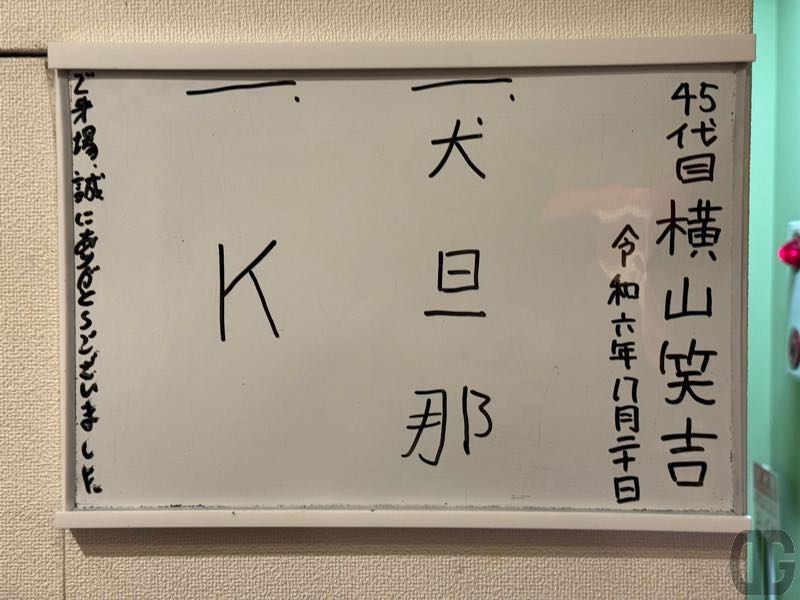 45代目横山笑吉
令和六年八月二十日
一、犬旦那
一、K
ご来場、誠にありがとうございました